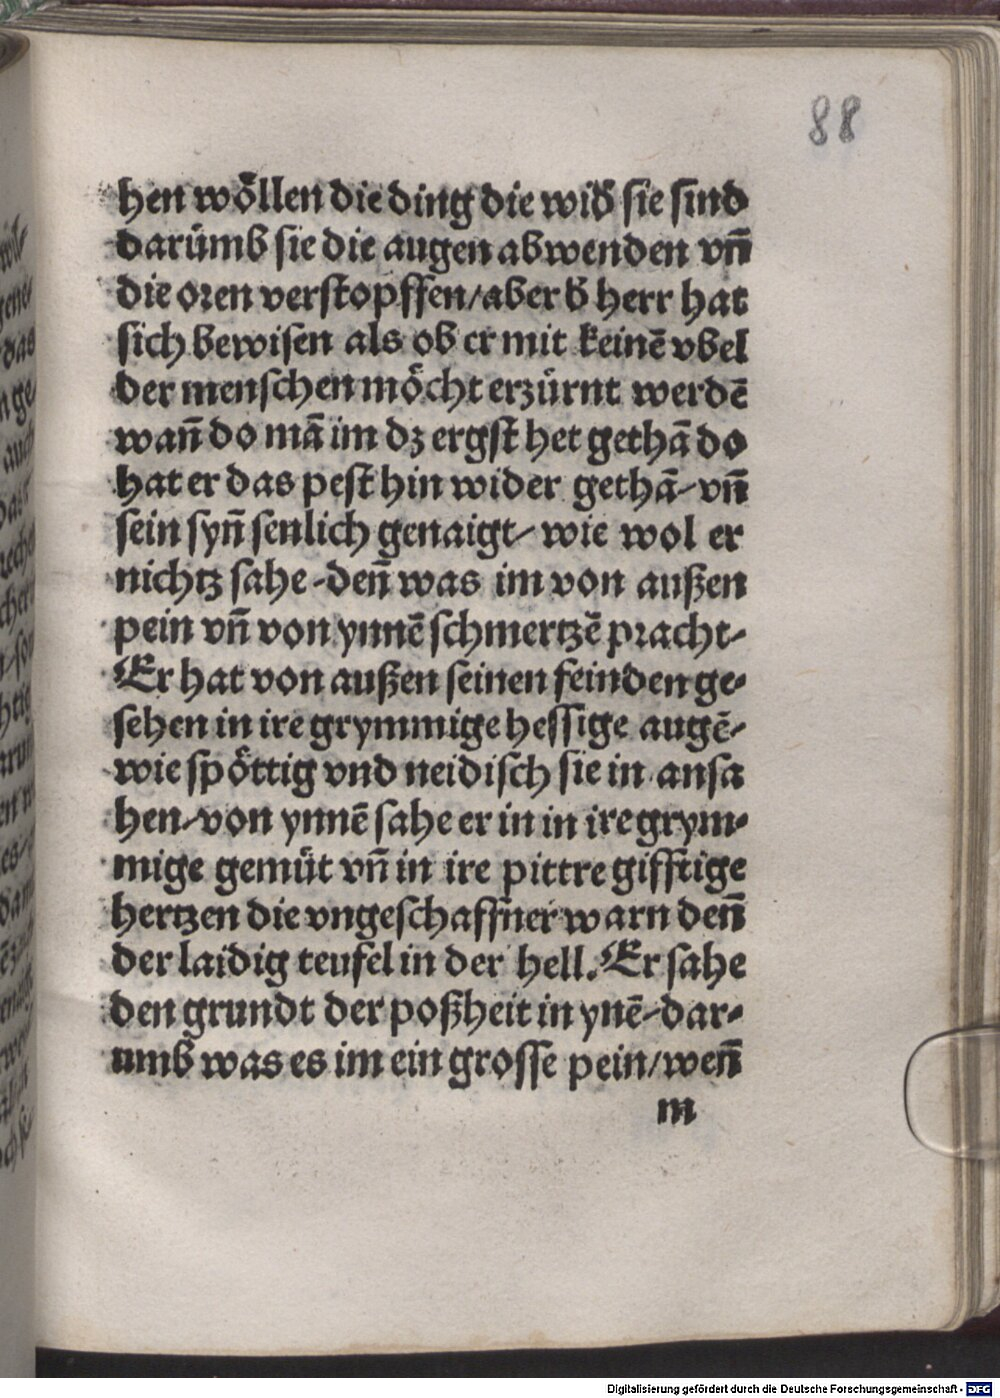 88
hen wöllen die ding die wid̕ sie sind
darümb sie die augen abwenden vn̄
die oren verstopffen/aber d̕ herr hat
sich bewisen als ob er mit keinē vbel
der menschen möcht erzürnt werdē
wan̄ do mā im dz ergst het gethā do
hat er das pest hin wider gethā/vn̄
sein syn̄ senlich genaigt/ wie wol er
nichtz sahe/den̄ was im von außen
pein vn̄ von ynnē schmertzē pracht/
Er hat von außen seinen feinden ge⸗
sehen in ire grymmige hessige augē/
wie spöttig vnd neidisch sie in ansa
hen/von ynnē sahe er in in ire grym⸗
mige gemüt vn̄ in ire pittre gifftige
hertzen die vngeschaffner warn den̄
der laidig teufel in der hell. Er sahe
den grundt der poßheit in ynē/dar⸗
umb was es im ein grosse pein/wen̄
m
Digitalisierung gefördert durch die Deutsche Forschungsgemeinschaft - DFG